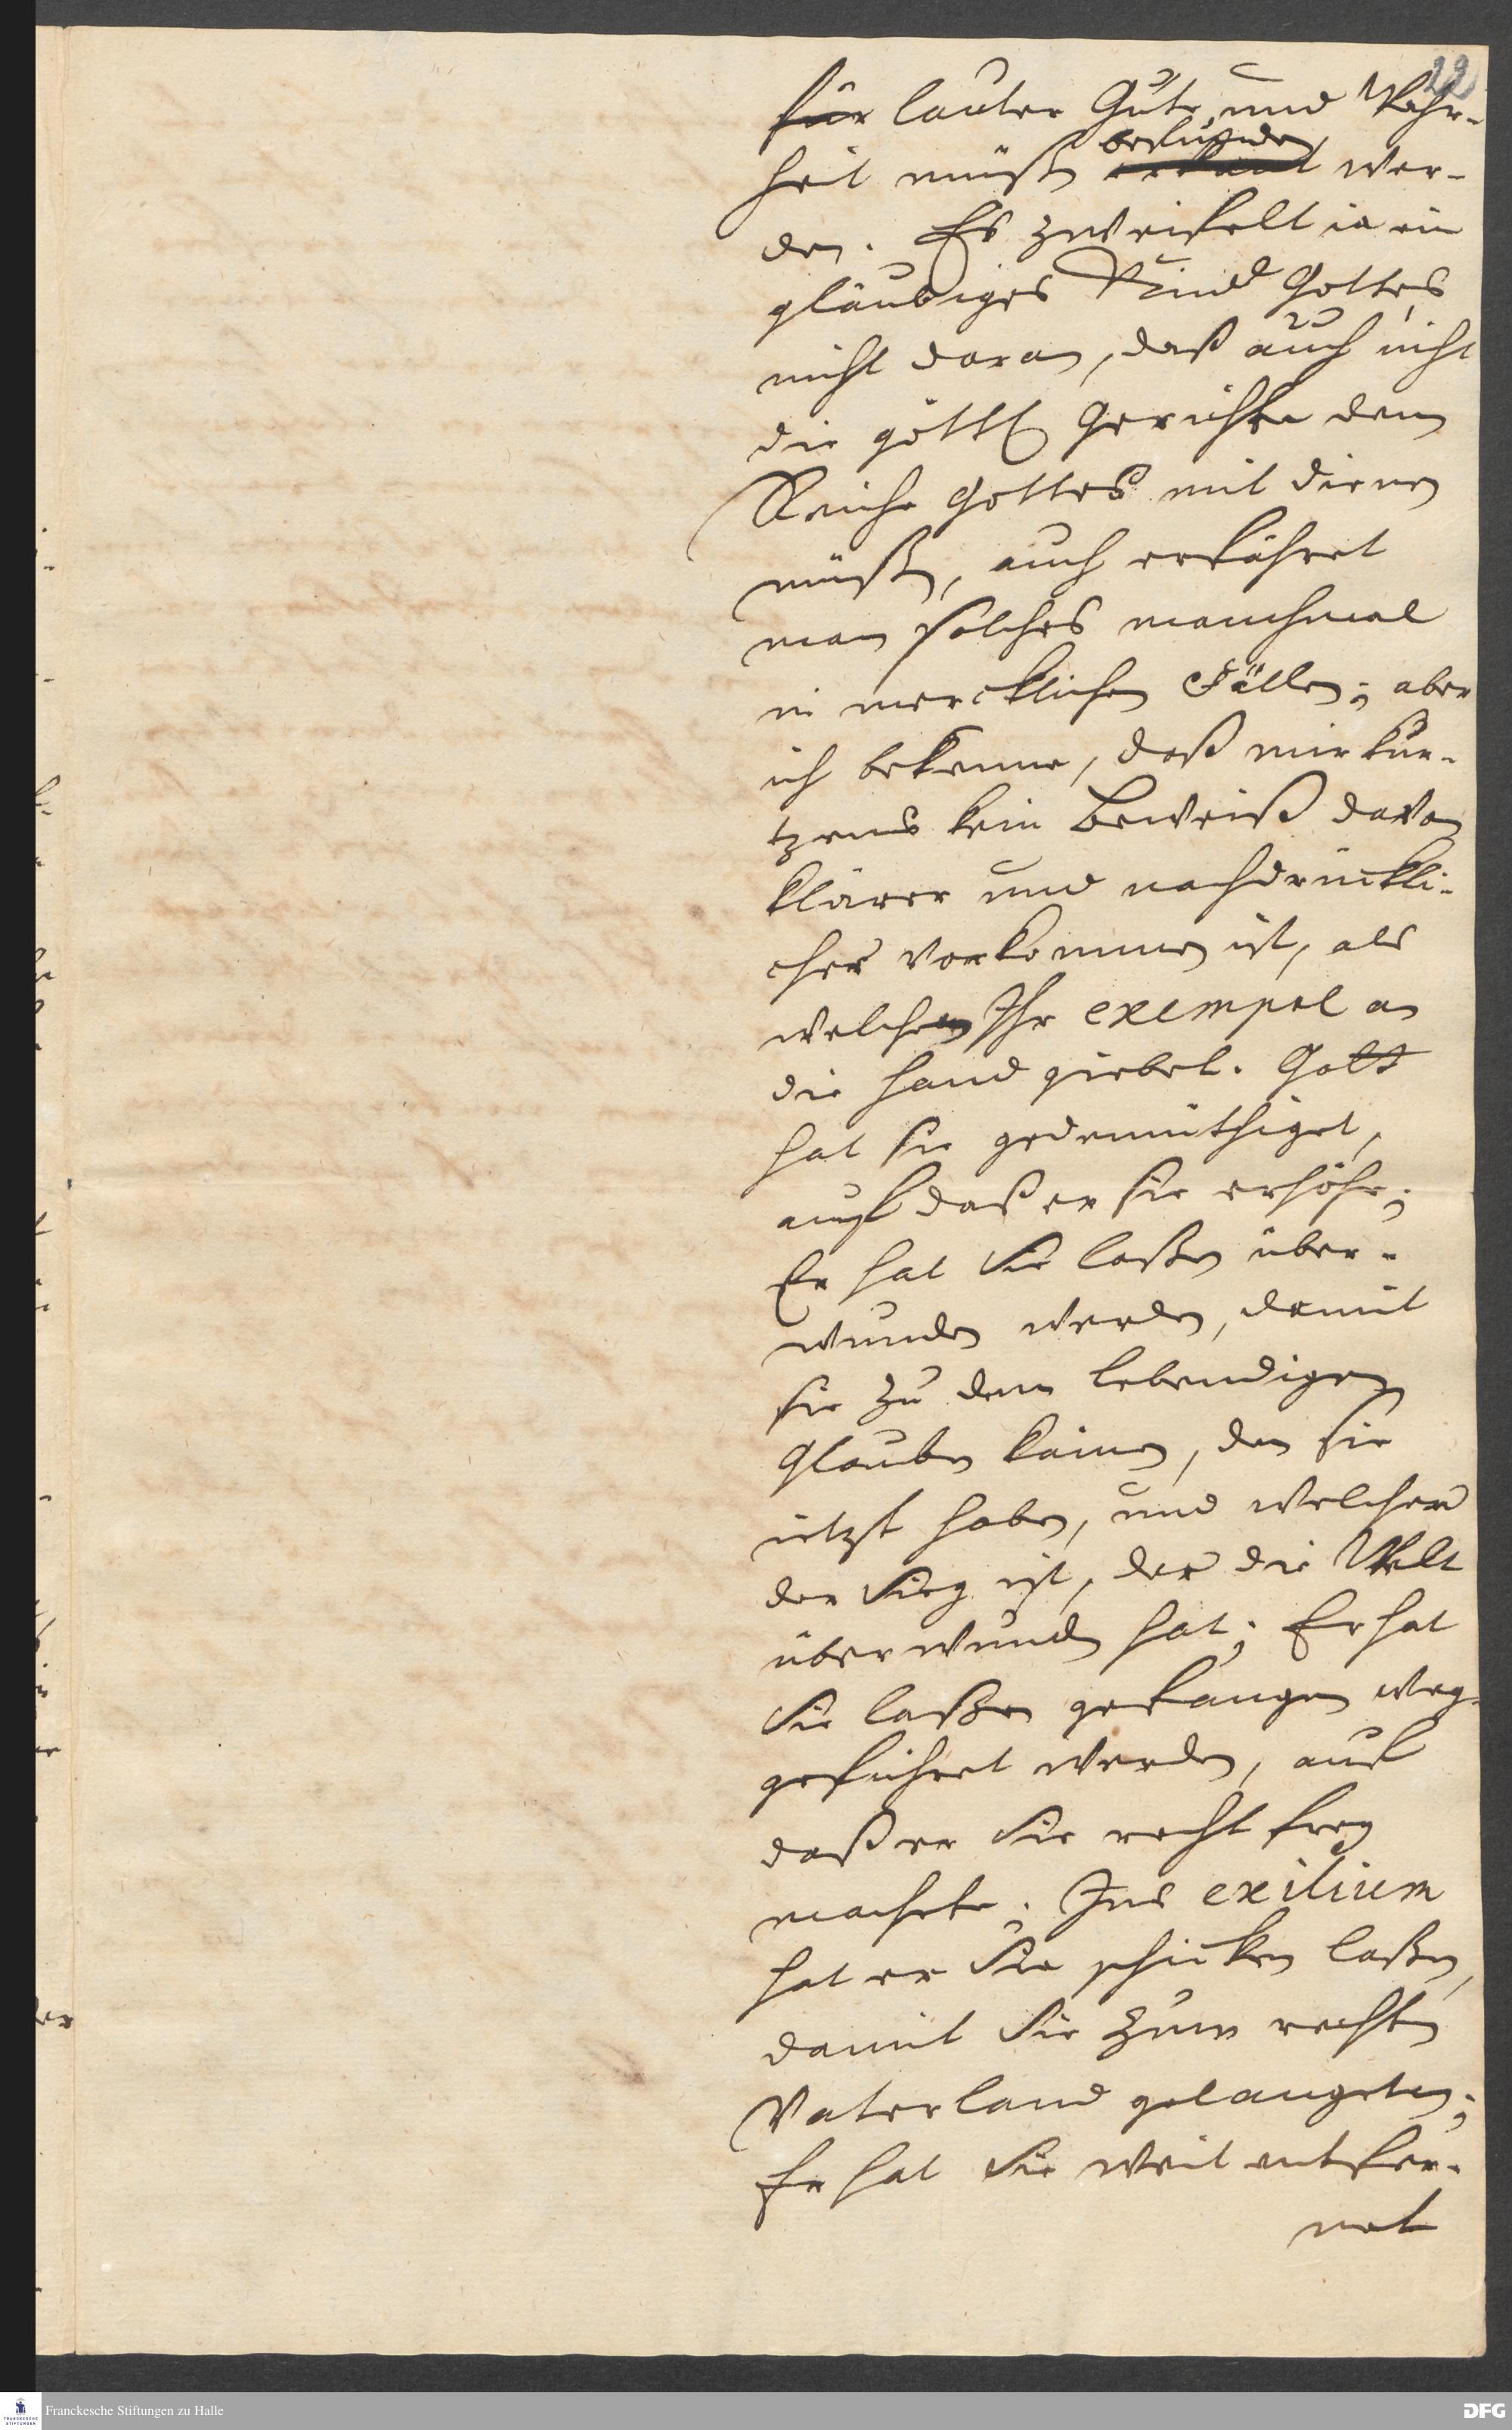 22
für lauter Güte und Wahr-
heit müßen befunden
erkant wer-
den. Es zweifelt ia ein
gläubiges Kind Gottes
nicht daran, daß auch nicht
die göttl Gerichte dem
Reiche Gottes mit dienen
müßen, auch erfähret
man solches manchmal
in mercklichen Fällen; aber
ich bekenne, daß mir
kein Beweiß davon
klärer und nachdrückli-
cher vorkommen ist, als
welchen Ihr exempel an
die hand giebet. Gott
hat sie gedemüthiget,
auf daß er sie erhöhe;
Er hat Sie laßen über-
wunden werden, damit
sie zu dem lebendigen
Glauben kämen, den sie
ietzt haben, und welcher
der Sieg ist, der die Welt
überwunden hat; Er hat
Sie laßen gefangen weg-
geführet werden, auf
daß er Sie recht frey
machete; Ins exilium
hat er Sie schicken laßen,
damit Sie zum rechten
Vaterland gelangeten;
Er hat Sie weit entfer-
net
Franckesche Stiftungen zu Halle
DFG